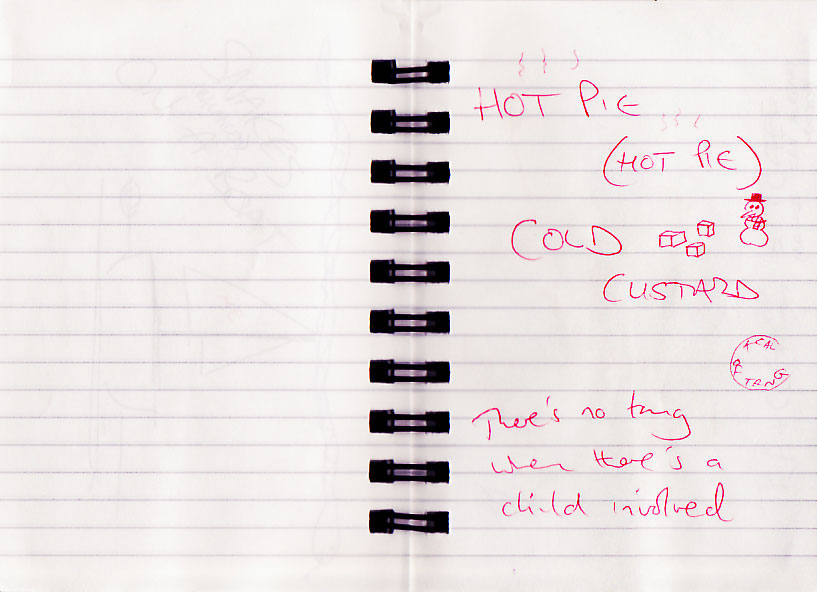 HOT PIE
(HOT PIE)
COLD
CUSTARD
TANG
There's no tang
when there's a
child involved